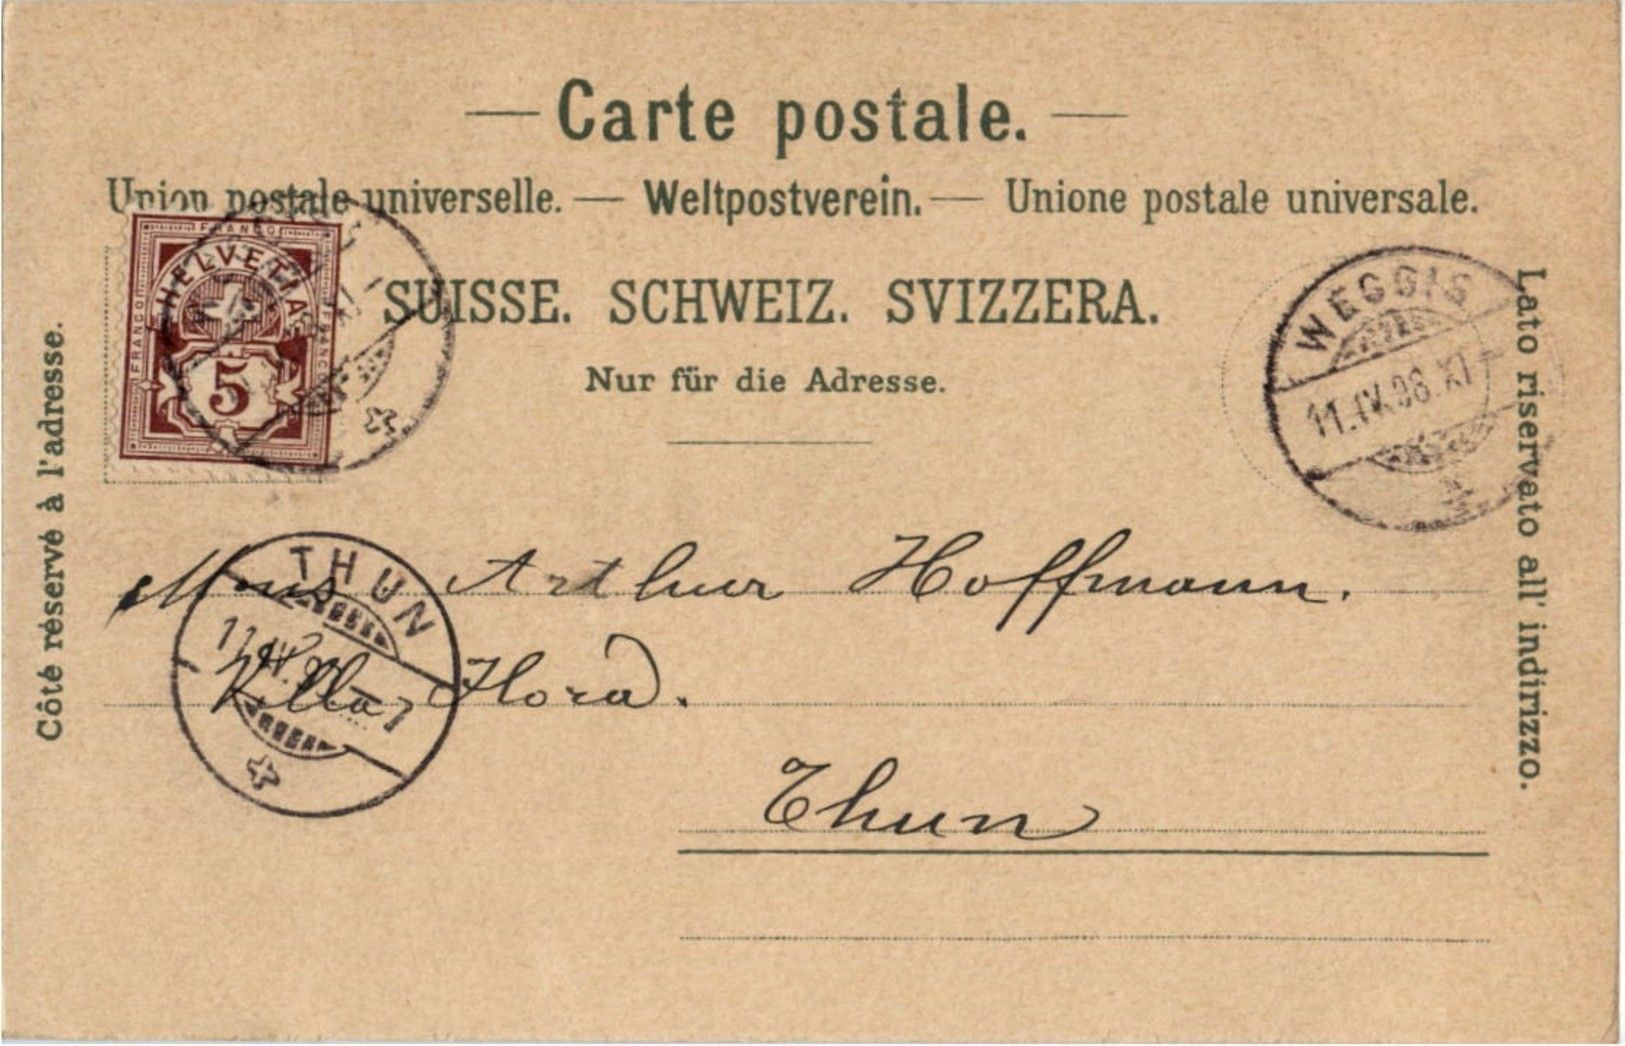 Carte postale.
Union postale universelle. — Weltpostverein. — Unione postale universale.
SUISSE. SCHWEIZ. SVIZZERA.
Nur für die Adresse.
Côté réservé à l'adresse.
Lato riservato all' indirizzo.
FRANCO
FRANCO
FRANCO
HELVETIA
5
WEGGIS
11.IV.98.XI
THUN
11.IV.
Mons Arthur Hoffmann.
Villa Flora.
Thun